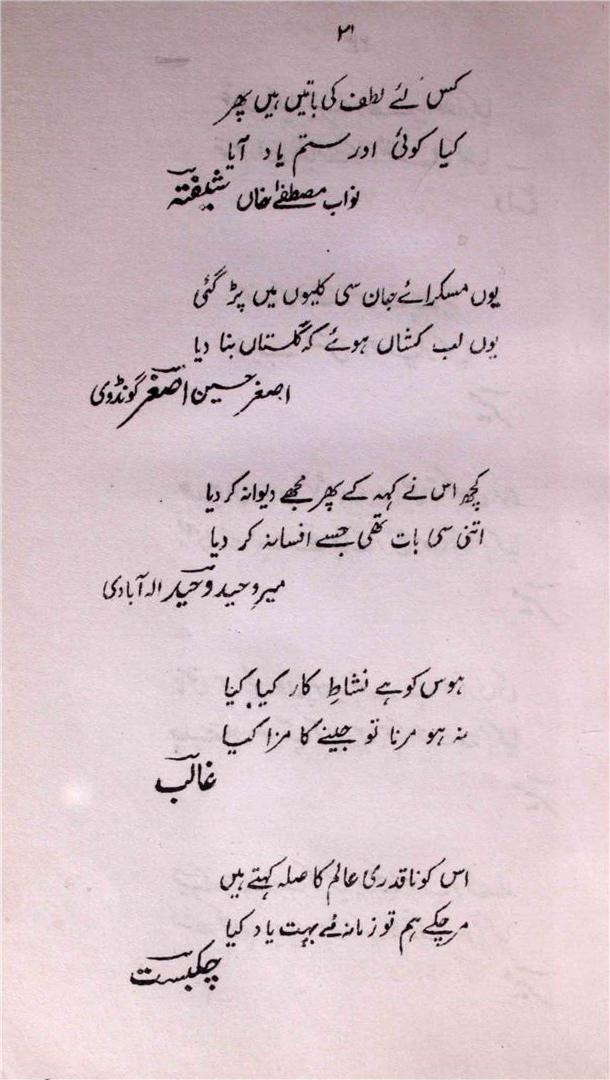 ۳۱
کس لئے لطف کی باتیں ہیں پھر
کیا کوئی اور ستم یاد آیا
نواب مصطفےٰ خاں شیفتہ
یوں مسکرائے جان سی کلیوں میں پڑ گئی
یوں لب کشاں ہوئے کہ گلستاں بنا دیا
اصغر حسین اصغر گونڈوی
کچھ اس نے کہہ کے پھر مجھے دیوانہ کر دیا
اتنی سی بات تھی جسے افسانہ کر دیا
میر وحید وحید الہ آبادی
ہوس کو ہے نشاطِ کار کیا کیا
نہ ہو مرنا تو جینے کا مزا کیا
غالب
اس کو ناقدریٔ عالم کا صلہ کہتے ہیں
مر چکے ہم تو زمانہ نے بہت یاد کیا
چکبست